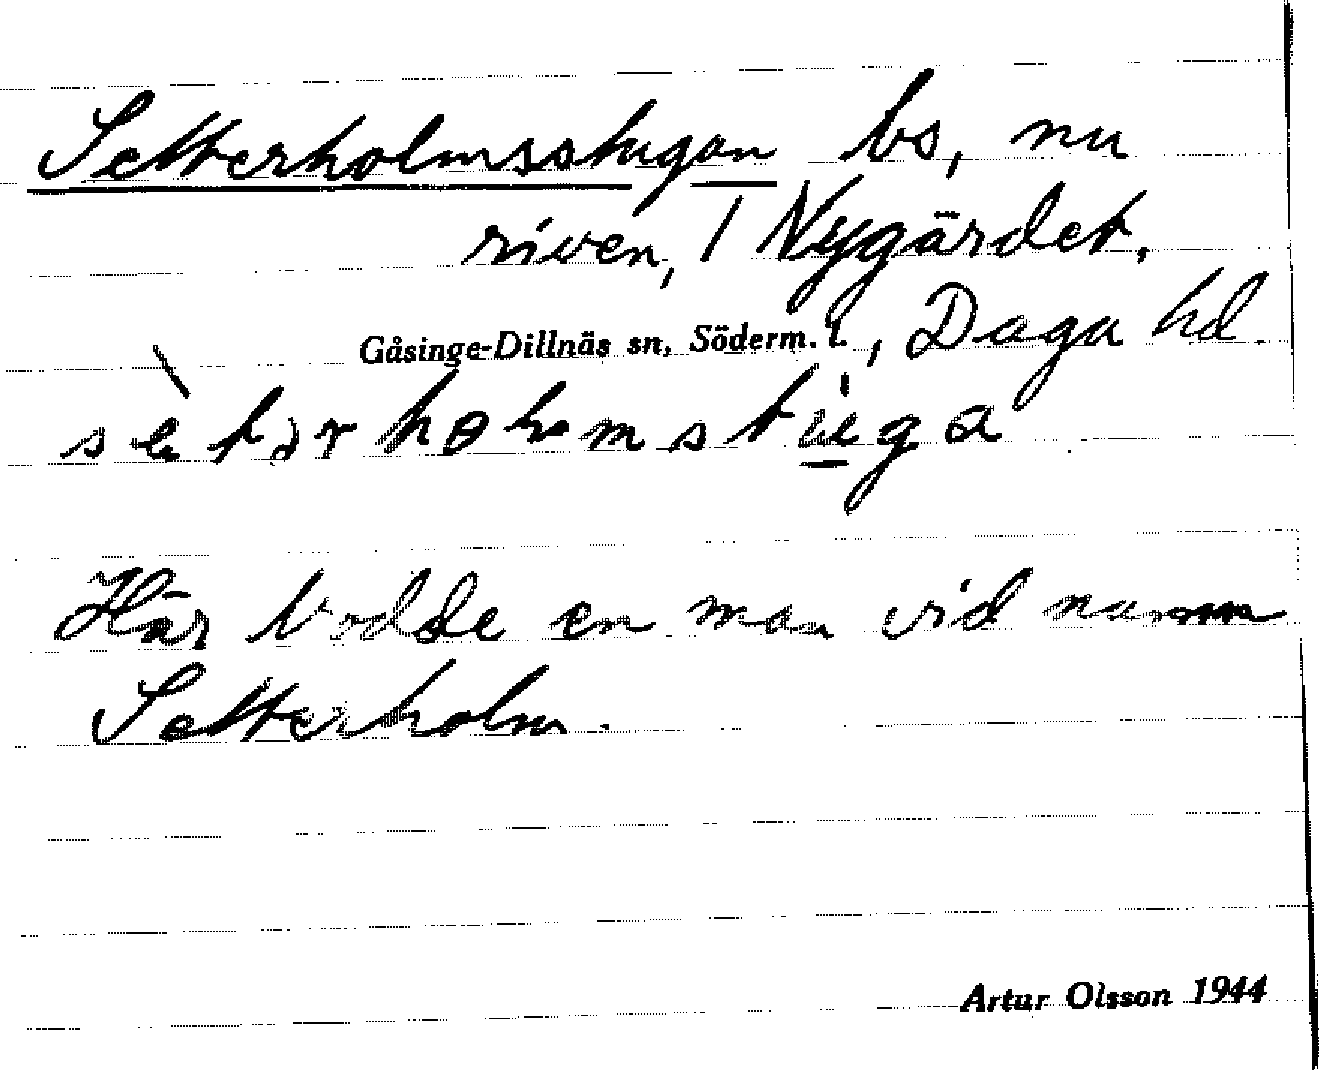 Setterholmsstugan bs, nu
riven, / Nygärdet.
Gåsinge-Dillnäs sn, Söderm. l., Daga hd.
Här bodde en man vid namn
Setterholm.
Artur Olsson 1944